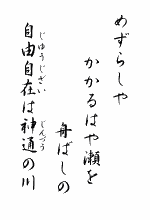 めずらしや
かかるはや瀬を
舟ばしの
自由自在は神通の川
じゆうじざい じんづう